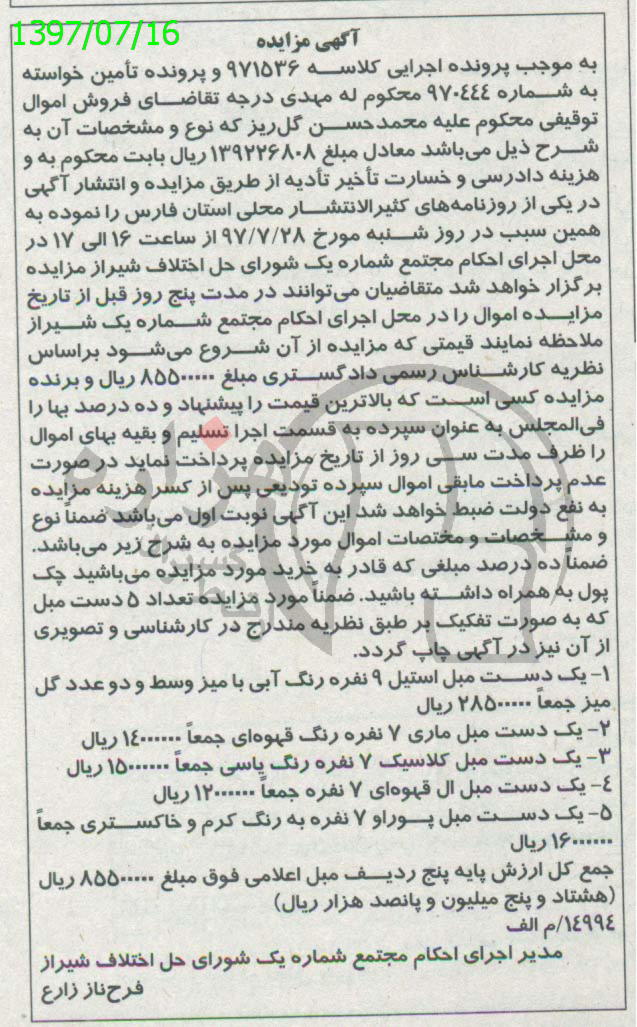 1397/07/16
آگهی مزایده
به موجب پرونده اجرایی کلاسه ۹۷۱۵۳۶ و پرونده تأمین خواسته
به شماره ۹۷۰۴۴۴ محکوم له مهدی درجه تقاضای فروش اموال
توقیفی محکوم علیه محمدحسن گل‌ریز که نوع و مشخصات آن به
شرح ذیل می‌باشد معادل مبلغ ۱۳۹۲۲۶۸۰۸ ریال بابت محکوم به و
هزینه دادرسی و خسارت تأخیر تأدیه از طریق مزایده و انتشار آگهی
در یکی از روزنامه‌های کثیرالانتشار محلی استان فارس را نموده به
همین سبب در روز شنبه مورخ ۹۷/۷/۲۸ از ساعت ۱۶ الی ۱۷ در
محل اجرای احکام مجتمع شماره یک شورای حل اختلاف شیراز مزایده
برگزار خواهد شد متقاضیان می‌توانند در مدت پنج روز قبل از تاریخ
مزایده اموال را در محل اجرای احکام مجتمع شماره یک شیراز
ملاحظه نمایند قیمتی که مزایده از آن شروع می‌شود براساس
نظریه کارشناس رسمی دادگستری مبلغ ۸۵۵۰۰۰۰۰ ریال و برنده
مزایده کسی است که بالاترین قیمت را پیشنهاد و ده درصد بها را
فی‌المجلس به عنوان سپرده به قسمت اجرا تسلیم و بقیه بهای اموال
را ظرف مدت سی روز از تاریخ مزایده پرداخت نماید در صورت
عدم پرداخت مابقی اموال سپرده تودیعی پس از کسر هزینه مزایده
به نفع دولت ضبط خواهد شد این آگهی نوبت اول می‌باشد ضمناً نوع
و مشخصات و مختصات اموال مورد مزایده به شرح زیر می‌باشد.
ضمناً ده درصد مبلغی که قادر به خرید مورد مزایده می‌باشید چک
پول به همراه داشته باشید. ضمناً مورد مزایده تعداد ۵ دست مبل
که به صورت تفکیک بر طبق نظریه مندرج در کارشناسی و تصویری
از آن نیز در آگهی چاپ گردد.
۱- یک دست مبل استیل ۹ نفره رنگ آبی با میز وسط و دو عدد گل
میز جمعاً ۲۸۵۰۰۰۰۰ ریال
۲- یک دست مبل ماری ۷ نفره رنگ قهوه‌ای جمعاً ۱۴۰۰۰۰۰۰ ریال
۳- یک دست مبل کلاسیک ۷ نفره رنگ یاسی جمعاً ۱۵۰۰۰۰۰۰ ریال
۴- یک دست مبل ال قهوه‌ای ۷ نفره جمعاً ۱۲۰۰۰۰۰۰ ریال
۵- یک دست مبل پوراو ۷ نفره به رنگ کرم و خاکستری جمعاً
۱۶۰۰۰۰۰۰ ریال
جمع کل ارزش پایه پنج ردیف مبل اعلامی فوق مبلغ ۸۵۵۰۰۰۰۰ ریال
(هشتاد و پنج میلیون و پانصد هزار ریال)
۱۴۹۹۴/م الف
مدیر اجرای احکام مجتمع شماره یک شورای حل اختلاف شیراز
فرح‌ناز زارع